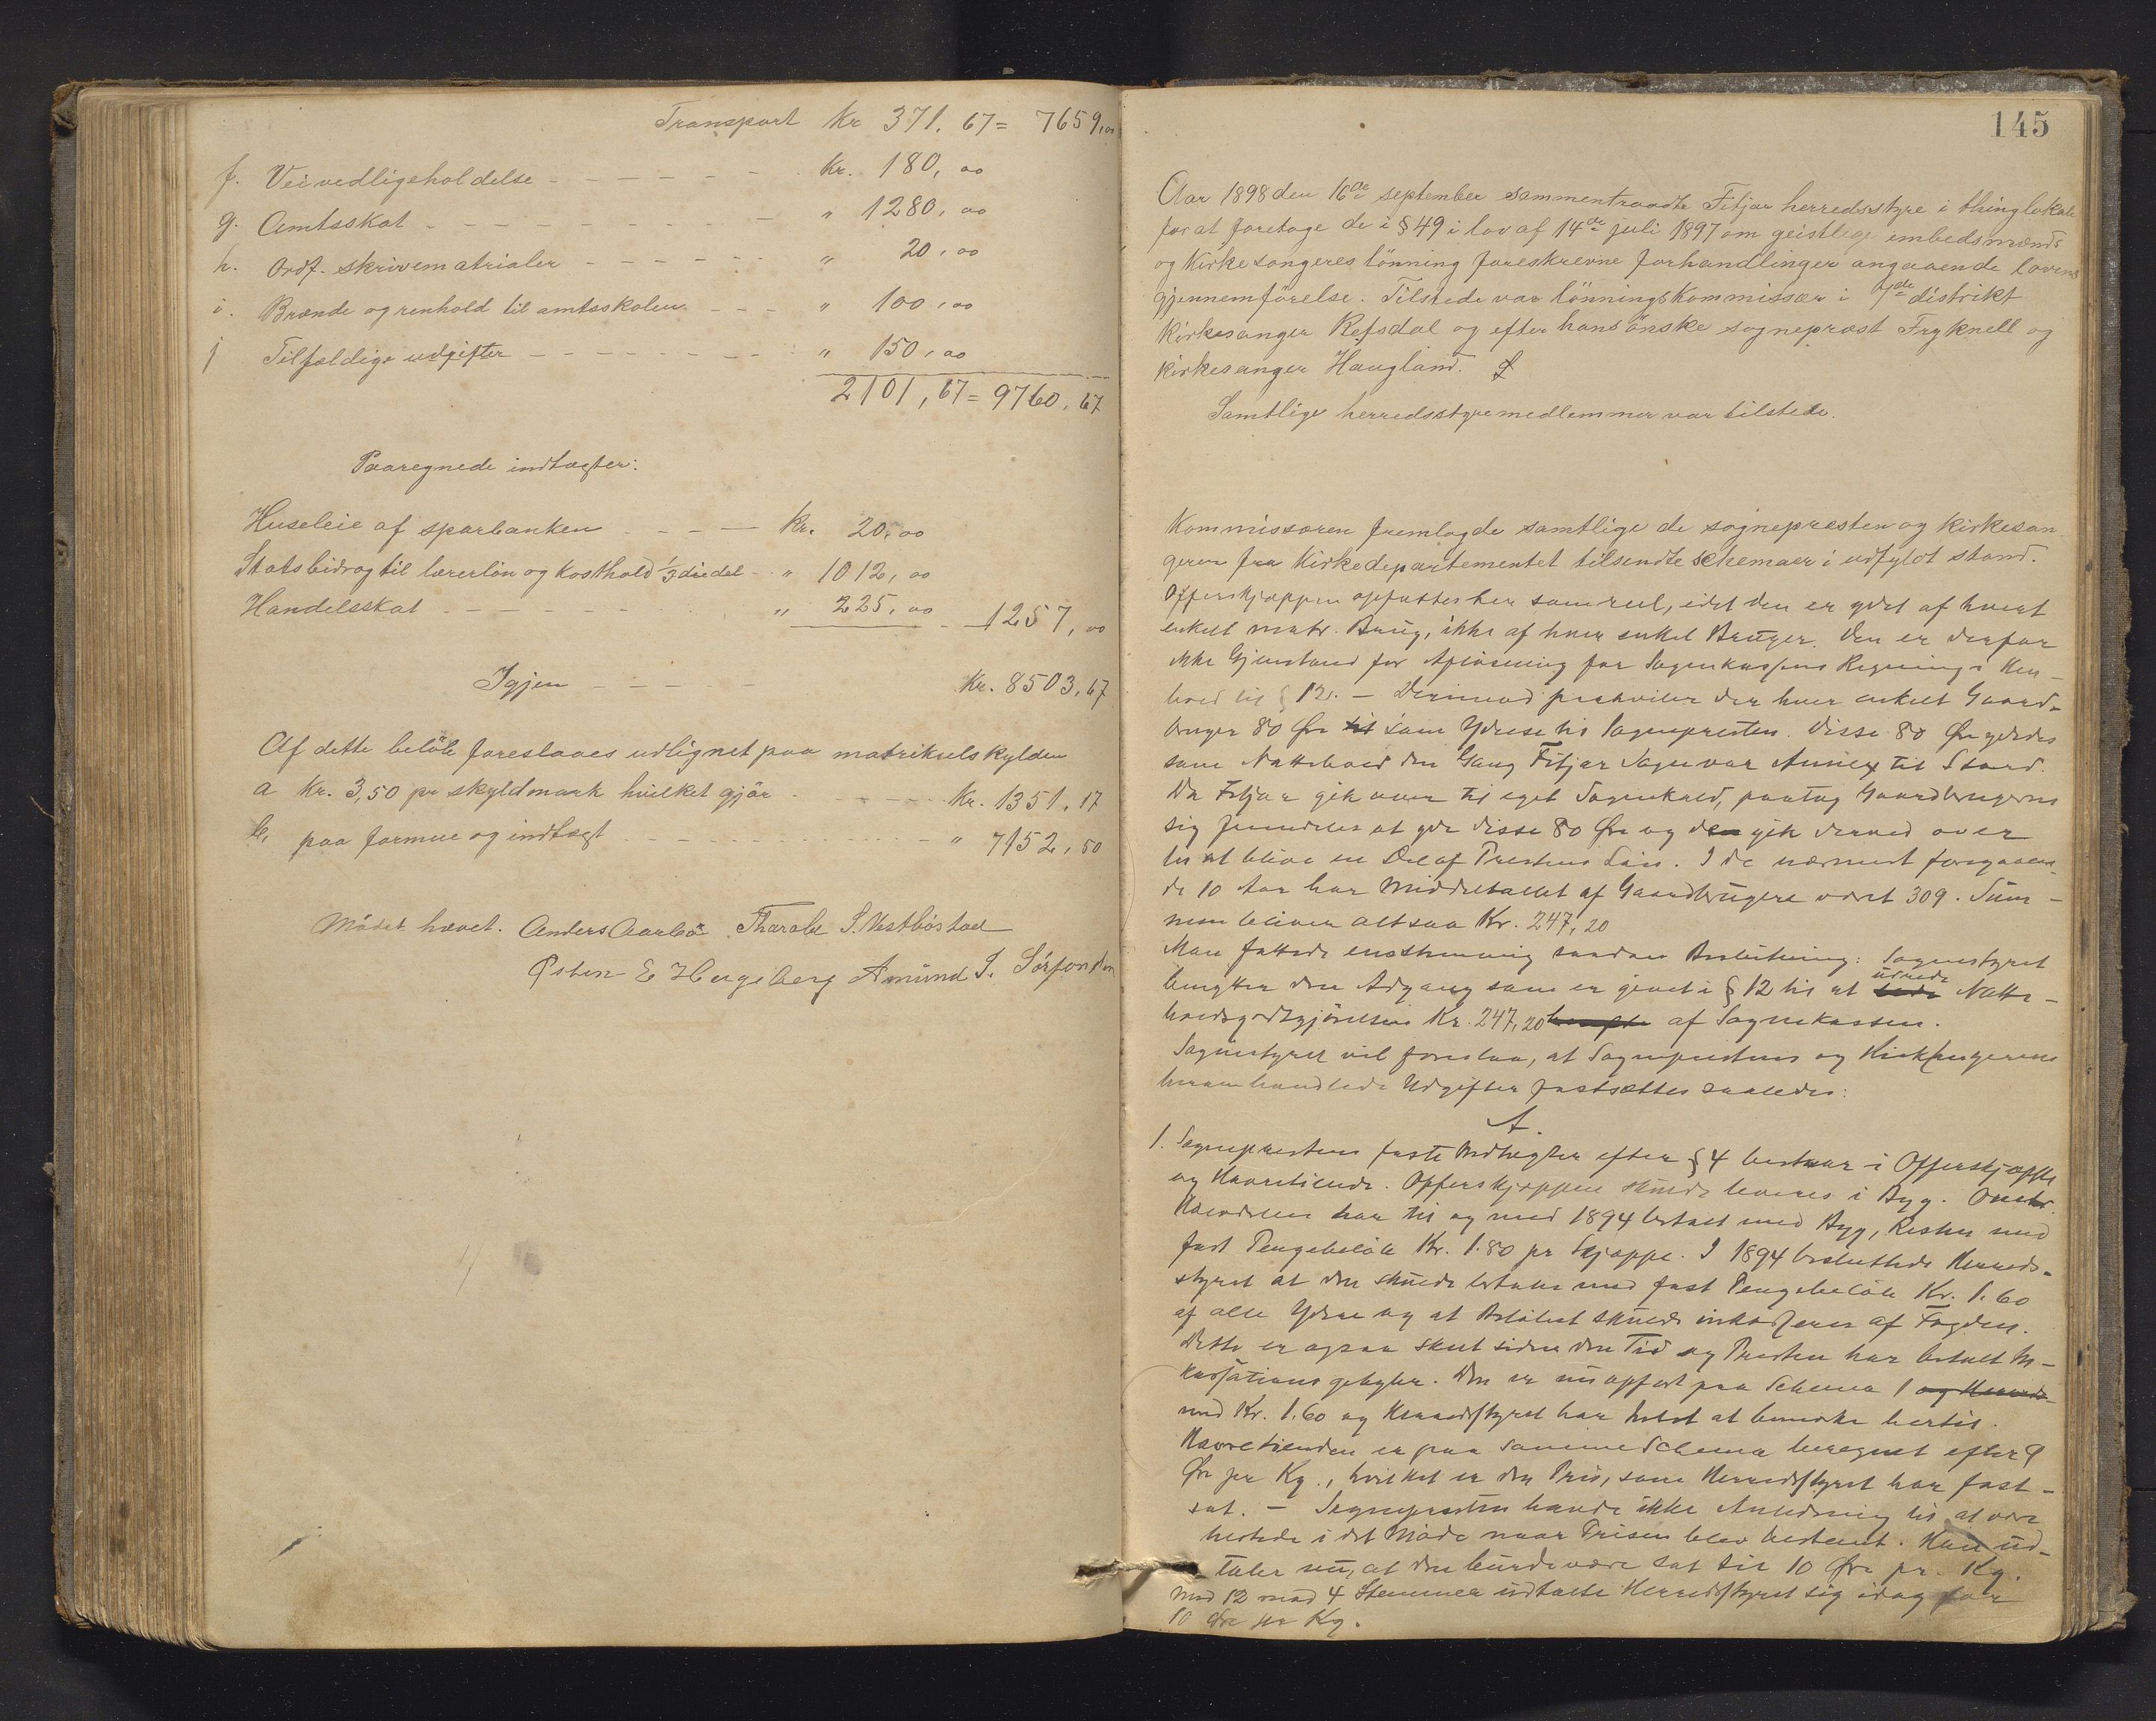 Transport Kr 371.67 = 7659,00
f. Veivedligeholdelse - - - - - - kr. 180,00
g. Amtsskat - - - - - - - - - " 1280,00
h. Ordf. skrivematrialer - - - - - - " 20,00
i. Brænde og renhold til amtsskolen. - - - " 100,00
j Tilfældige udgifter - - - - - - - - " 150,00
2101,67 = 9760,67
Paaregnede indtægter:
Huseleie af sparbanken - - - Kr. 20,00
Statsbidrag til lærerløn og kosthold 1/3 diedel - " 1012,00
Handelsskat - - - - - - " 225,00 - 1257,00
Igjen - - - - - Kr. 8503,67
Af dette beløb foreslaaes udlignet paa matrikelskylden
a Kr. 3,50 pr skyldmark hvilket gjør - - - - - Kr. 1351.17
b, paa formue og indtægt - - - - - - - - - " 7152,50
Mødet hævet. Anders Aarbø Tharald S. Vestbøstad
Østen E Hugeberg Amund S. Sørfonden
145
Aar 1898 den 16de september sammentraadte Fitjar herredsstyre i thinglokalet
for at foretage de i § 49 i lov af 14de juli 1897 om geistlige embedsmænds
og Kirkesangeres lønning foreskrevne forhandlinger angaaende lovens
gjennemførelse. Tilstede var lønningskommissær i 7de distrikt
Kirkesanger Refsdal og efter hans ønske sogneprest Fryknell og
kirkesanger Haugland.
Samtlige herredsstyremedlemmer var tilstede.
Kommissæren fremlagde samtlige de sognepresten og kirkesan
geren fra Kirkedepartementet tilsendte schemaer i udfyldt stand.
Offerskjæppen opfattes her som reel, idet den er ydet af hvert
enkelt matr. Brug, ikke af hver enkel Bruger. Den er derfor
ikke Gjenstand for Afløsning for Sognekassens Regning i Hen-
hold til § 12. - Derimod paahviler der hver enkelt Gaard-
bruger 80 Øre til som Ydelse til Sognepresten. Disse 80 Øre ydedes
som Nattehold den Gang Fitjar Sogn var Annex til Stord.
Da Fitjar gik over til eget Sognekald, paatog Gaardbrugerne
sig fremdeles at yde disse 80 Øre og den gik derved over
til at blive en Del af Prestens Løn. I de nærmest foregaaen-
de 10 Aar har Middeltallet af Gaardbrugere været 309. Sum-
men bliver altsaa Kr. 247,20
Man fattede enstemmig saadan Beslutning: Sognestyret
benytter den Adgang som er givet i § 12 til at udrede Natte-
holdsgodtgjørelsen Kr. 247,20 af Sognekassen.
Sognestyret vil foreslaa, at Sogneprestens og Kirkesangerens
heromhandlede Udgifter fastsættes saaledes:
A.
1. Sogneprestens faste Indtægter efter § 4 bestaar i Offerskjæppe
og Havretiende. Offerskjæppen skulde leveres i Byg. Omtr.
Halvdelen har til og med 1894 betalt med Byg, Resten med
fast Pengebeløb Kr. 1.80 pr Skjæppe. I 1894 besluttede Herreds-
styret at den skulde betales med fast Pengebeløb Kr. 1.60
af alle Ydere og at Beløbet skulde inkasseres af Fogden.
Dette er ogsaa skeet siden den Tid og Presten har betalt In-
kassationsgebyhr. Den er nu opført paa Schema 1 og Herreds
med Kr. 1.60 og Herredsstyret har Intet at bemerke hertil.
Havretienden er paa samme Schema beregnet efter 9
Øre pr Kg., hvilket er den Pris, som Herredsstyret har fast-
sat. - Sognepresten havde ikke Anledning til at være
tilstede i det Møde naar Prisen blev bestemt. Han ud-
taler nu, at den burde være sat til 10 Øre pr. Kg.
Med 12 mod 4 Stemmer udtalte Herredsstyret sig idag for
10 Øre pr Kg.